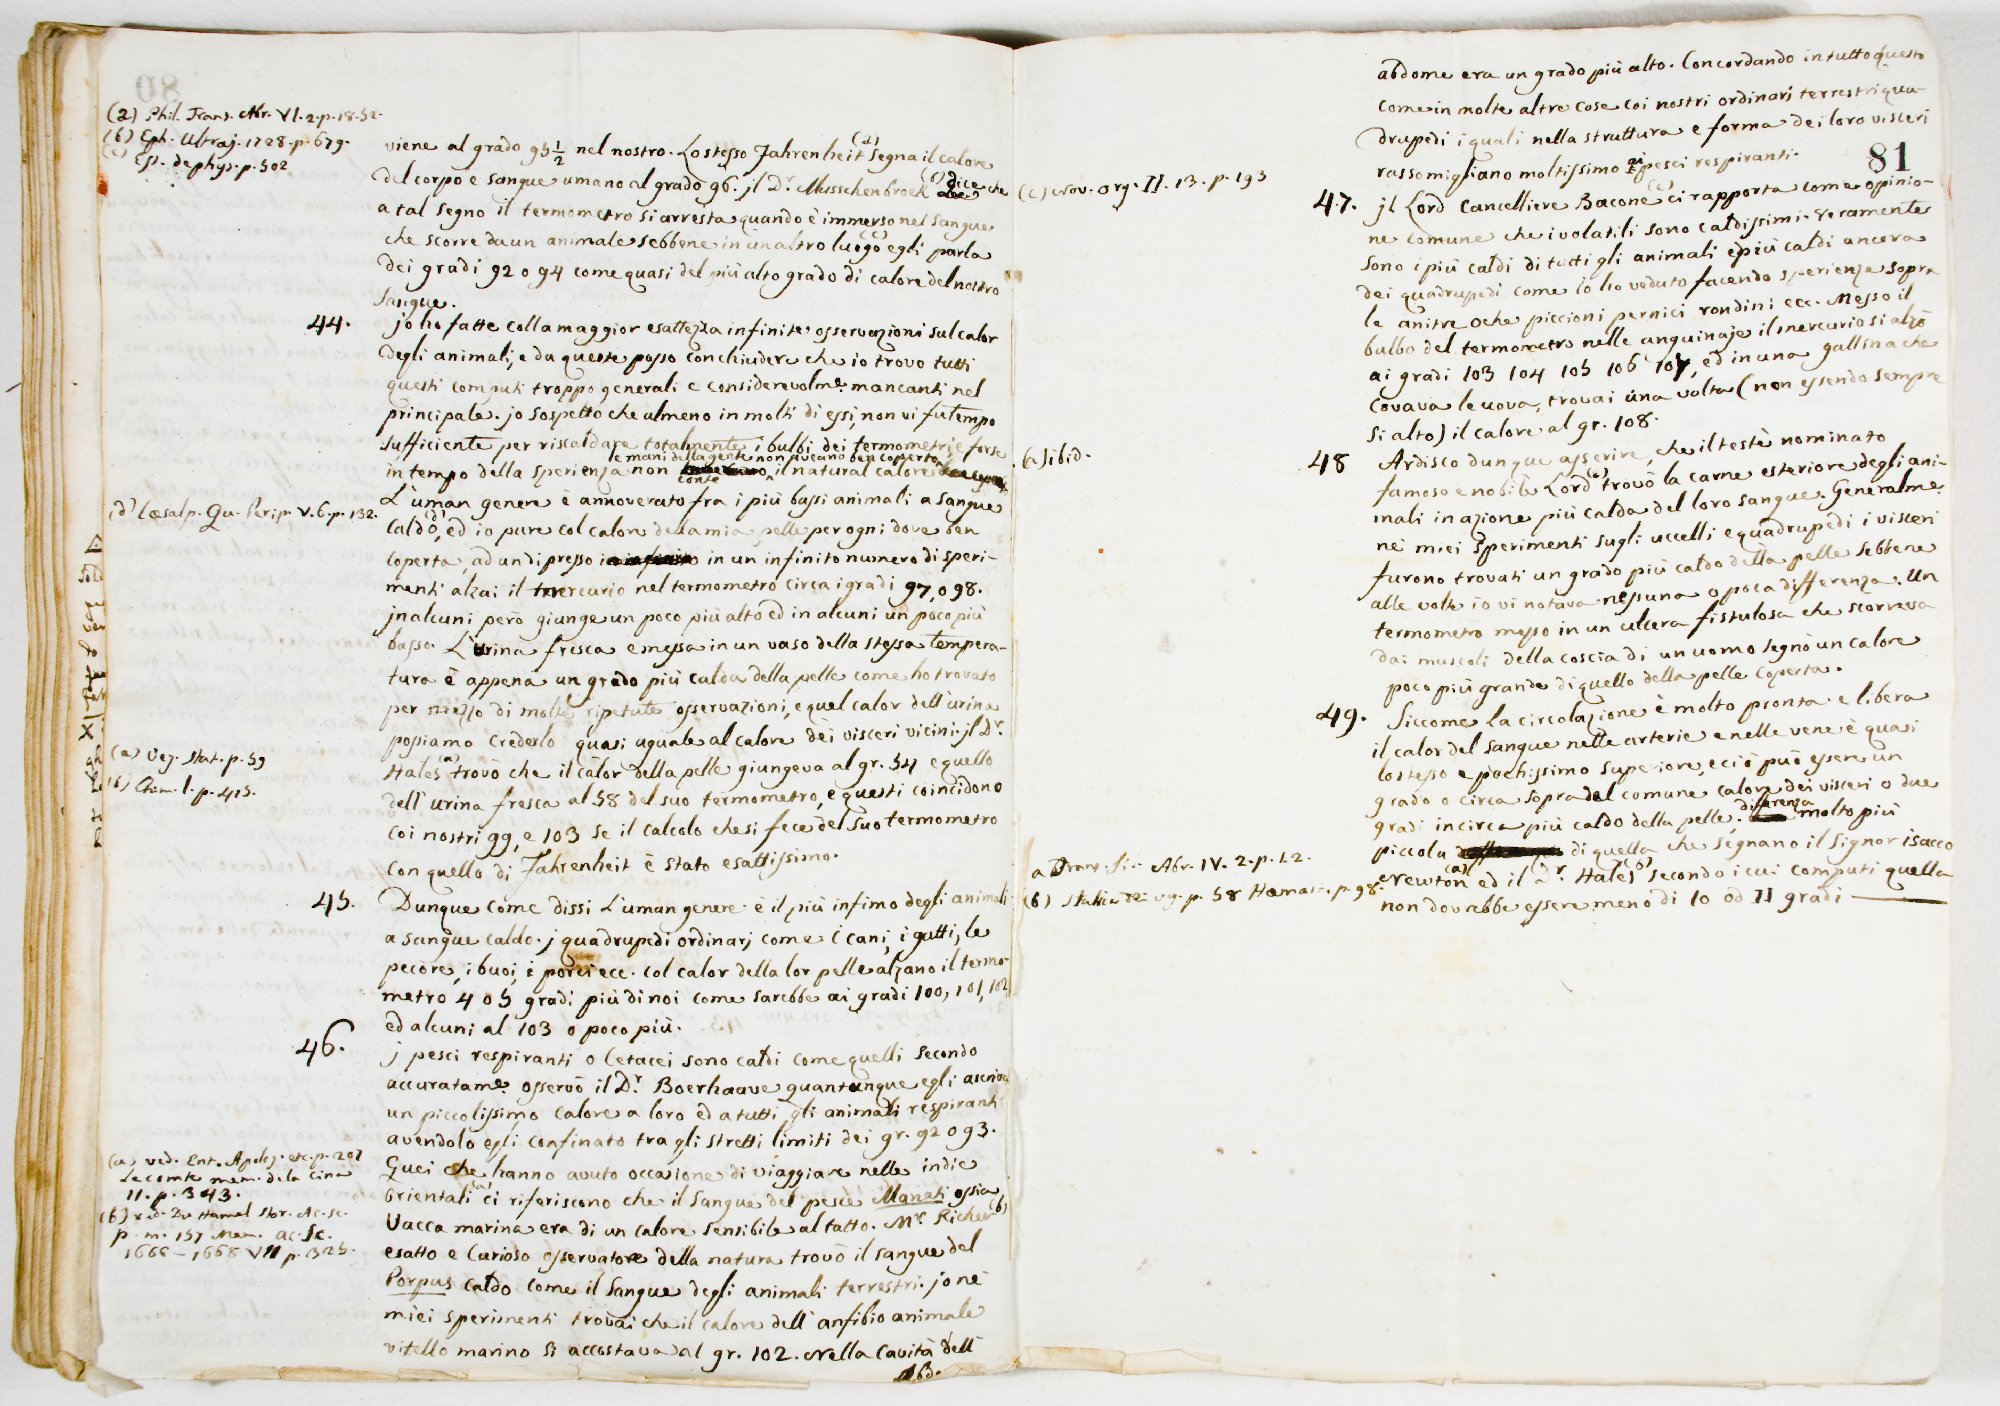 (a) Phil. Trans. Abr. VI. 2. p. 18. 52.
(b) Eph. Ultraj. 1728. p. 679.
(c) Ess. de phys. p. 502
viene al grado 95 1/2 nel nostro. Lo stesso Fahrenheit (a) segna il calore
del corpo e sangue umano al grado 96. jl Dr. Musschenbroek (b) dice che
a tal segno il termometro si arresta quando è immerso nel sangue
che scorre da un animale sebbene in un altro luogo (c) egli parla
dei gradi 92 o 94 come quasi del più alto grado di calore del nostro
sangue.
44. jo ho fatte colla maggior esattezza infinite osservazioni sul calor
degli animali, e da queste posso conchiudere che io trovo tutti
questi computi troppo generali e considerevolme. mancanti nel
principale. jo sospetto che almeno in molti di essi, non vi fu tempo
sufficiente per riscaldare totalmente i bulbi dei termometri e forse
le mani della gente non aveano ben coperto
in tempo della sperienza non il natural calore
(d) Cæsalp. Qu. Perip. V. 6. p. 132.
L'uman genere è annoverato fra i più bassi animali a sangue
caldo (d), ed io pure col calore della mia pelle per ogni dove ben
coperta, ad un di presso in un infinito numero di speri-
menti alzai il mercurio nel termometro circa i gradi 97, o 98.
jn alcuni però giunge un poco più alto ed in alcuni un poco più
basso. L'urina fresca e messa in un vaso della stessa tempera-
tura è appena un grado più calda della pelle come ho trovato
per mezzo di molte ripetute osservazioni, e quel calor dell'urina
possiamo crederlo quasi uguale al calore dei visceri vicini. jl Dr.
(a) Veg. Stat. p. 59
(b) Chim. l. p. 415.
Hales (a) trovò che il calor della pelle giungeva al gr. 54 e quello
dell'urina fresca al 58 del suo termometro, e questi coincidono
coi nostri 99, e 103 se il calcolo che si fece del suo termometro
con quello di Fahrenheit è stato esattissimo.
45. Dunque come dissi L'uman genere è il più infimo degli animali
a sangue caldo. j quadrupedi ordinarj come i cani, i gatti, le
pecore, i buoi, i porci ecc. col calor della lor pelle alzano il termo-
metro 4 o 5 gradi più di noi come sarebbe ai gradi 100, 101, 102,
ed alcuni al 103 o poco più.
46. j pesci respiranti o Cetacei sono caldi come quelli secondo
accuratame. osservò il Dr. Boerhaave quantunque egli ascriva
un piccolissimo calore a loro ed a tutti gli animali respiranti
avendolo egli confinato tra gli stretti limiti dei gr. 92 o 93.
(a) ved. Ent. Apolog. etc. p. 207
Le comte mem. de la Cina
II. p. 343.
(b) ved. Du Hamel Stor. Ac. Sc.
p. m. 157 Mem. ac. Sc.
1666 - 1668 VII p. 325.
Quei che hanno avuto occasione di viaggiare nelle indie
orientali (a) ci riferiscono che il sangue del pesce Manati ossia
Vacca marina era di un calore sensibile al tatto. Mr. Richer (b)
esatto e curioso osservatore della natura trovò il sangue del
Porpus caldo come il sangue degli animali terrestri. jo nè
miei sperimenti trovai che il calore dell'anfibio animale
vitello marino si accostava al gr. 102. Nella cavità dell'
abd.
81
abdome era un grado più alto. Concordando in tutto questo
come in molte altre cose coi nostri ordinarj terrestri qua-
drupedi i quali nella struttura e forma dei loro visceri
rassomigliano moltissimo ai pesci respiranti.
(c) Nov. Org. II. 13. p. 193
47. jl Lord Cancelliere Bacone (c) ci rapporta come opinio-
ne comune che i volatili sono caldissimi. Veramente
sono i più caldi di tutti gli animali e più caldi ancora
dei quadrupedi come io ho veduto facendo sperienze sopra
le anitre oche piccioni pernici rondini ecc. Messo il
bulbo del termometro nelle anguinaje il mercurio si alzò
ai gradi 103 104 105 106 107, ed in una gallina che
covava le uova, trovai una volta (non essendo sempre
si alto) il calore al gr. 108.
(a) ibid.
48 Ardisco dunque asserire, che il testè nominato
famoso e nobile Lord (a) trovò la carne esteriore degli ani-
mali in azione più calda del loro sangue. Generalme.
nè miei sperimenti sugli uccelli e quadrupedi i visceri
furono trovati un grado più caldo della pelle sebbene
alle volte io vi notava nessuna o poca differenza. Un
termometro messo in un ulcera fistulosa che scorreva
dai muscoli della coscia di un uomo segnò un calore
poco più grande di quello della pelle coperta.
49. Siccome la circolazione è molto pronta e libera
il calor del sangue nelle arterie e nelle vene è quasi
lo stesso e pochissimo superiore, e ciò può essere un
grado o circa sopra del comune calore dei visceri o due
gradi incirca più caldo della pelle. differenza molto più
piccola di quella che segnano il Signor isacco
a Abr. IV. 2. p. 1. 2.
(b) p. 58 Hæmast. p. 98.
Newton (a) ed il Dr. Hales (b) secondo i cui computi quella
non dovrebbe essere meno di 10 od 11 gradi